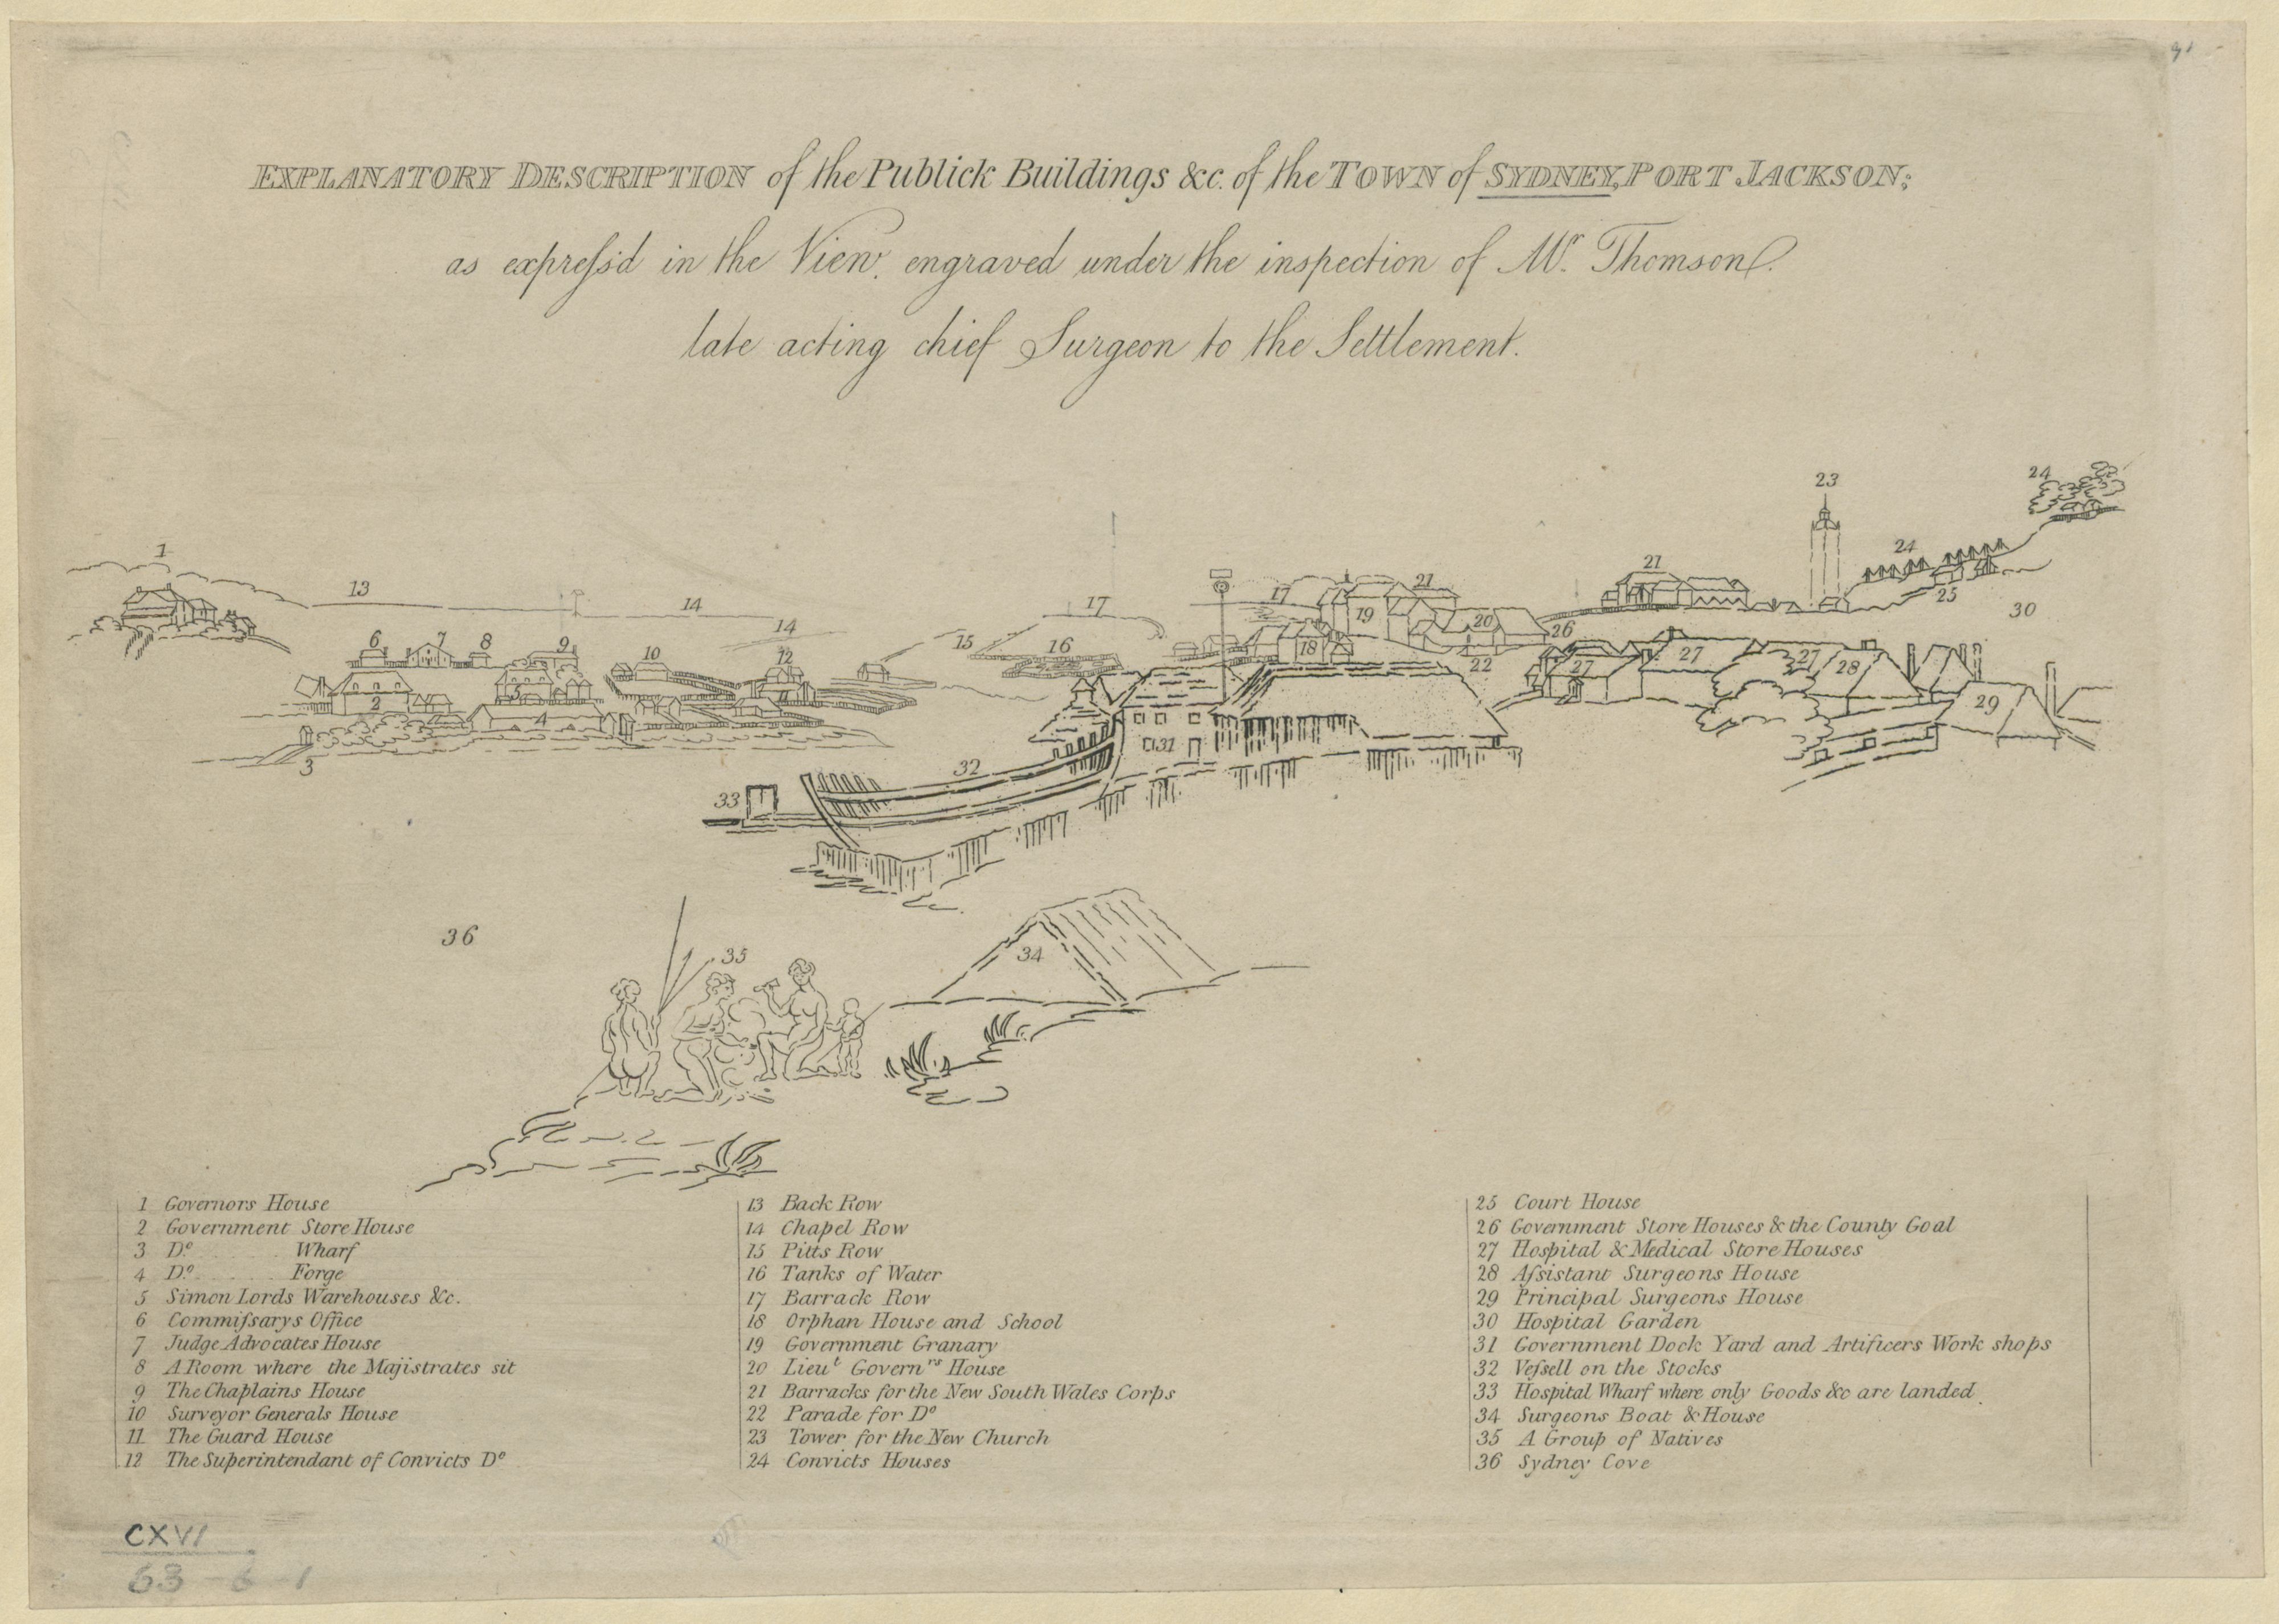 EXPLANATORY DESCRIPTION of the Publick Buildings &c. of the TOWN of SYDNEY, PORT JACKSON;
as expreſs'd in the View, engraved under the inspection of Mr. Thomson
late acting chief Surgeon to the Settlement.
1
13
14
14
6
7
8
9
10
12
15
16
17
17
21
19
20
18
22
26
21
23
24
24
25
30
2
5
4
3
27
27
27
28
29
31
32
33
36
35
34
1 Governors House
2 Government Store House
3 Do. ...... Wharf
4 Do. ...... Forge
5 Simon Lords Warehouses &c.
6 Commiſsarys Office
7 Judge Advocates House
8 A Room where the Majistrates sit
9 The Chaplains House
10 Surveyor Generals House
11 The Guard House
12 The Superintendant of Convicts Do
13 Back Row
14 Chapel Row
15 Pitts Row
16 Tanks of Water
17 Barrack Row
18 Orphan House and School
19 Government Granary
20 Lieut Governrs House
21 Barracks for the New South Wales Corps
22 Parade for Do
23 Tower for the New Church
24 Convicts Houses
25 Court House
26 Government Store Houses & the County Goal
27 Hospital & Medical Store Houses
28 Aſsistant Surgeons House
29 Principal Surgeons House
30 Hospital Garden
31 Government Dock Yard and Artificers Work shops
32 Veſsell on the Stocks
33 Hospital Wharf where only Goods &c are landed.
34 Surgeons Boat & House
35 A Group of Natives
36 Sydney Cove
CXVI
63-6-1